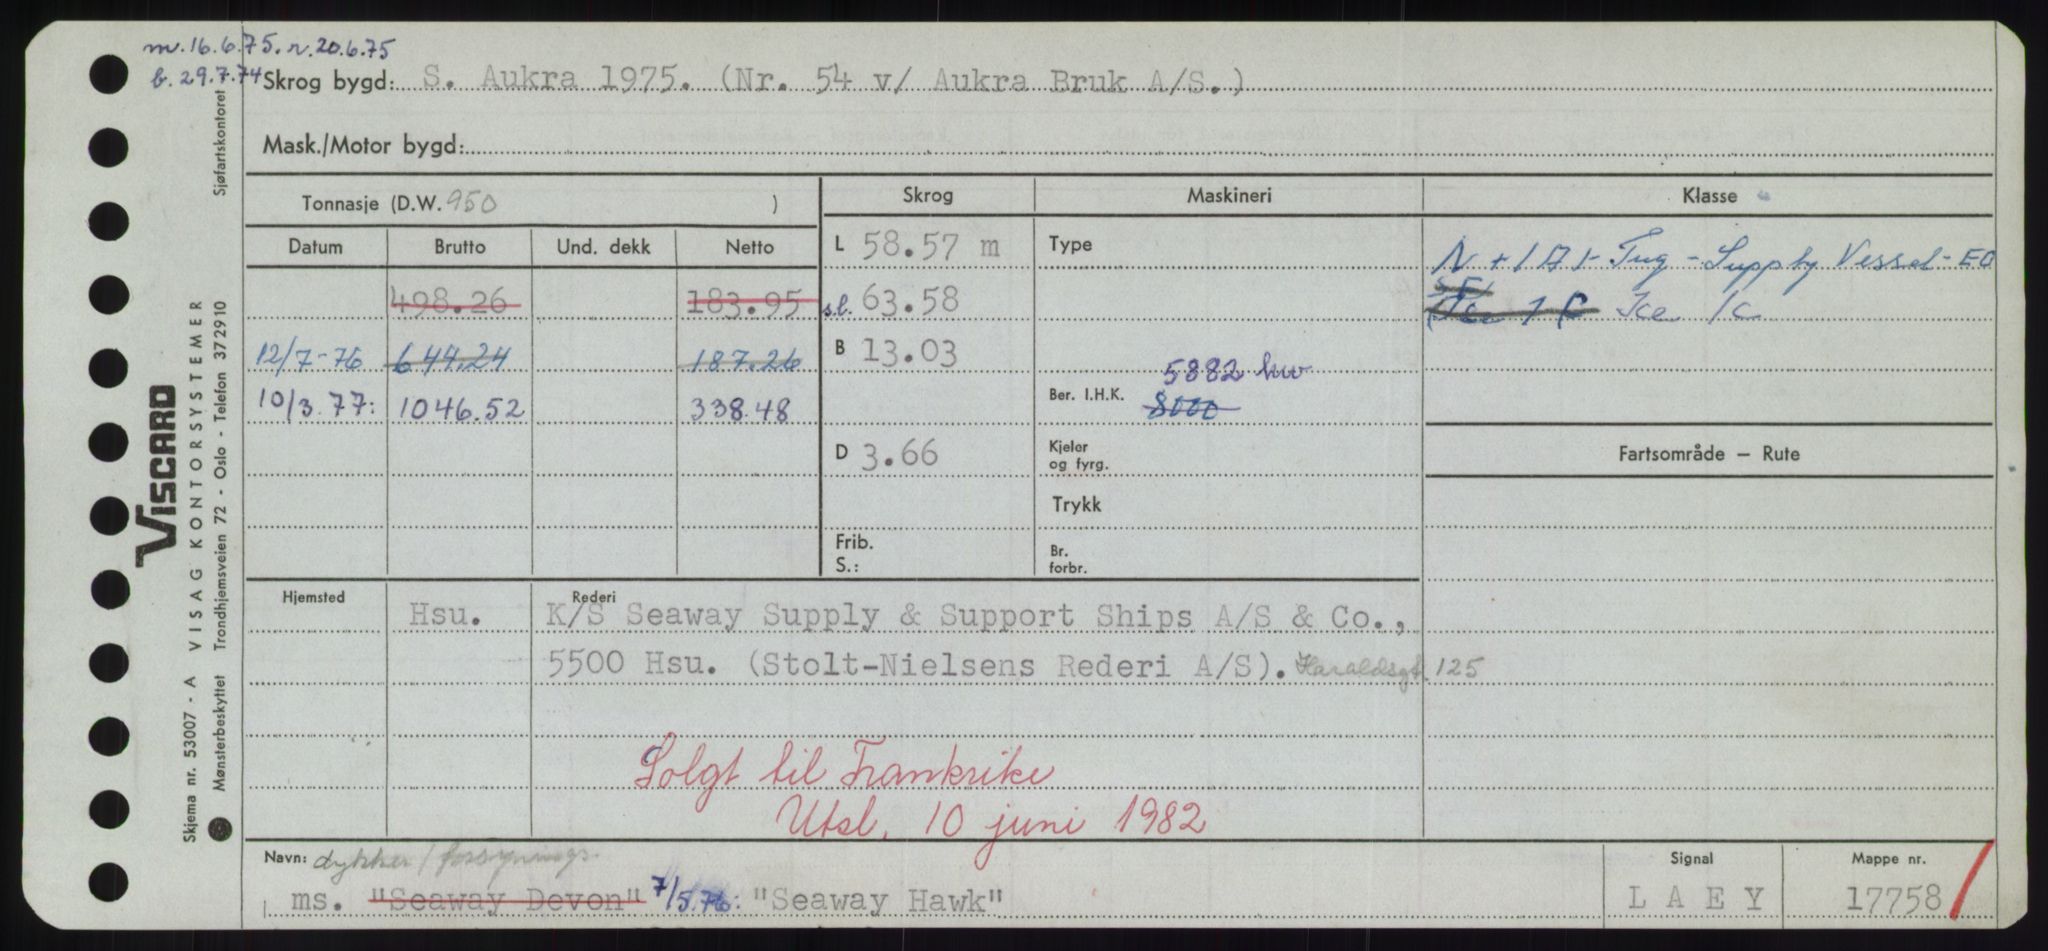 m. 16.6.75. r. 20.6.75
b. 29.7.74
Skrog bygd: S. Aukra 1975. (Nr. 54 v/ Aukra Bruk A/S.)
Mask./Motor bygd:
Tonnasje (D.W. 950 )
Skrog
Maskineri
Klasse
Datum Brutto Und. dekk Netto
L 58.57 m
Type
N + 1A1- Tug - Supply Vessel - EO
498.26 183.95
s.l. 63.58
Ice 1C Ice 1C
12/7-76 644.24 187.26
B 13.03
5882 kw
10/3.77: 1046.52 338.48
Ber. I.H.K. 8000
D 3.66
Kjeler og fyrg.
Fartsområde – Rute
Trykk
Frib.
S.:
Br. forbr.
Hjemsted Hsu.
Rederi K/S Seaway Supply & Support Ships A/S & Co.,
5500 Hsu. (Stolt-Nielsens Rederi A/S). Haraldsgt. 125
Solgt til Frankrike
Utsl. 10 juni 1982
Navn: dykker/forsynings.
ms. "Seaway Devon" 7/5.76: "Seaway Hawk"
Signal
LAEY
Mappe nr.
17758
VISCARD
Skjema nr. 53007 - A VISAG KONTORSYSTEMER
Mønsterbeskyttet Trondhjemsveien 72 - Oslo - Telefon 372910 Sjøfartskontoret